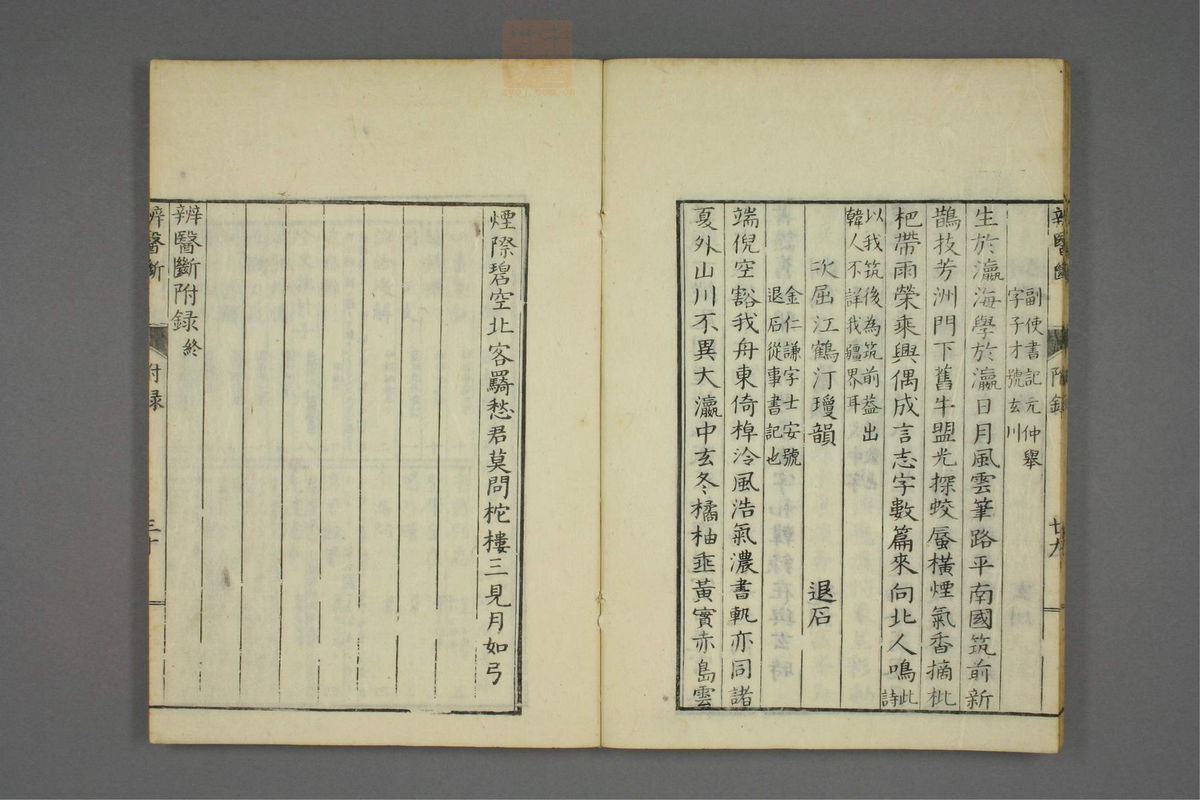 辨醫斷
附錄
廿九
副使書記元仲舉
字子才號玄川
生於瀛海學於瀛日月風雲筆路平南國筑前新
鵲技芳洲門下舊牛盟光探蛟蜃橫煙氣香摘枇
杷帶雨榮乘興偶成言志字數篇來向北人鳴此詩
以我筑後為筑前益出
韓人不詳我疆界耳
次屈江鶴汀瓊韻
退石
金仁謙字士安號
退石從事書記也
端倪空豁我舟東倚棹泠風浩氣濃書軌亦同諸
夏外山川不異大瀛中玄冬橘柚垂黃實赤島雲
煙際碧空北客羈愁君莫問柁樓三見月如弓
辨醫斷附錄終
辨醫斷
附錄
三十